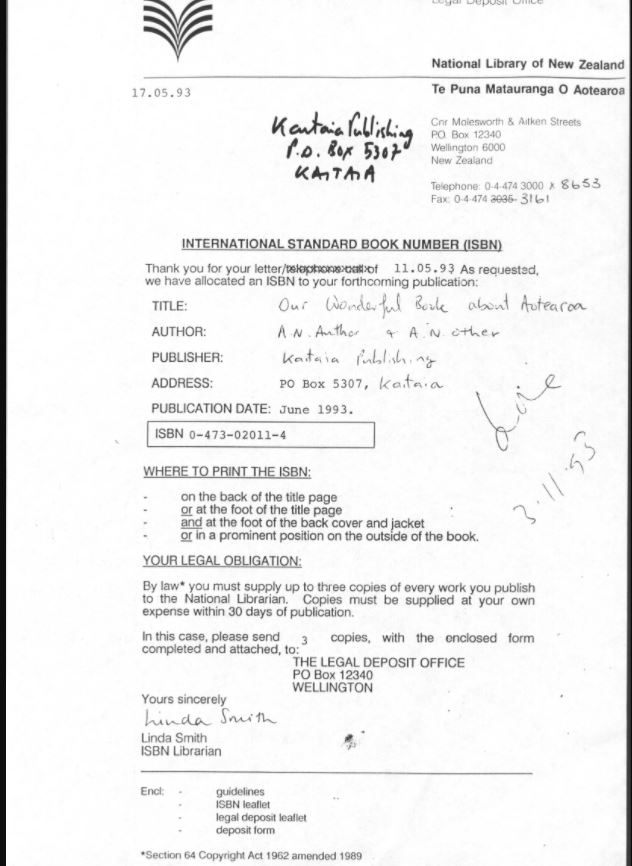 Legal Deposit Office
National Library of New Zealand
17.05.93
Te Puna Matauranga O Aotearoa
Kaitaia Publishing
P.O. Box 5307
KAITAIA
Cnr Molesworth & Aitken Streets
P.O. Box 12340
Wellington 6000
New Zealand
Telephone: 0-4-474 3000 x 8653
Fax: 0-4-474 3035- 3161
INTERNATIONAL STANDARD BOOK NUMBER (ISBN)
Thank you for your letter/telephone call of 11.05.93 As requested,
we have allocated an ISBN to your forthcoming publication:
TITLE: Our Wonderful Book about Aotearoa
AUTHOR: A.N. Author & A.N. other
PUBLISHER: Kaitaia Publishing
ADDRESS: PO Box 5307, Kaitaia
PUBLICATION DATE: June 1993.
ISBN 0-473-02011-4
3.11.93
WHERE TO PRINT THE ISBN:
- on the back of the title page
- or at the foot of the title page
- and at the foot of the back cover and jacket
- or in a prominent position on the outside of the book.
YOUR LEGAL OBLIGATION:
By law* you must supply up to three copies of every work you publish
to the National Librarian. Copies must be supplied at your own
expense within 30 days of publication.
In this case, please send 3 copies, with the enclosed form
completed and attached, to:
THE LEGAL DEPOSIT OFFICE
PO Box 12340
WELLINGTON
Yours sincerely
Linda Smith
Linda Smith
ISBN Librarian
Encl: - guidelines
- ISBN leaflet
- legal deposit leaflet
- deposit form
*Section 64 Copyright Act 1962 amended 1989